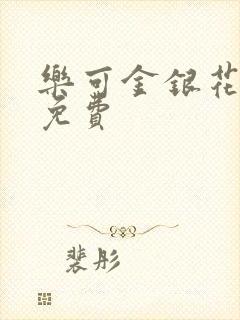 樂可金銀花
免費
裴彤